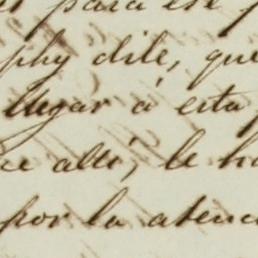 para ese
phy dile, que
llegar á esta
ce allí, le ha
por la atenci